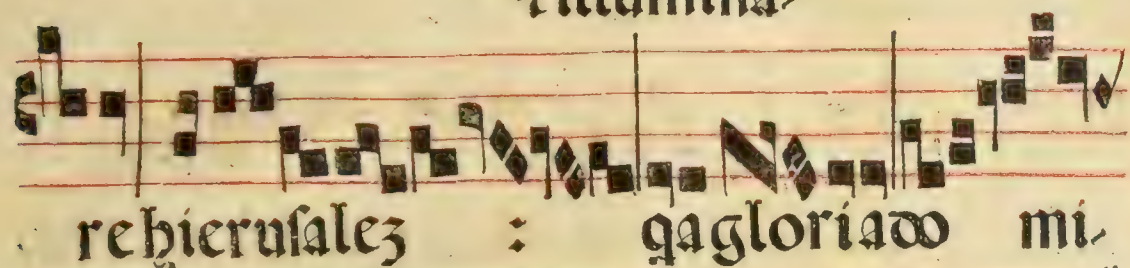 rehieruſalez : qagloriado mi-